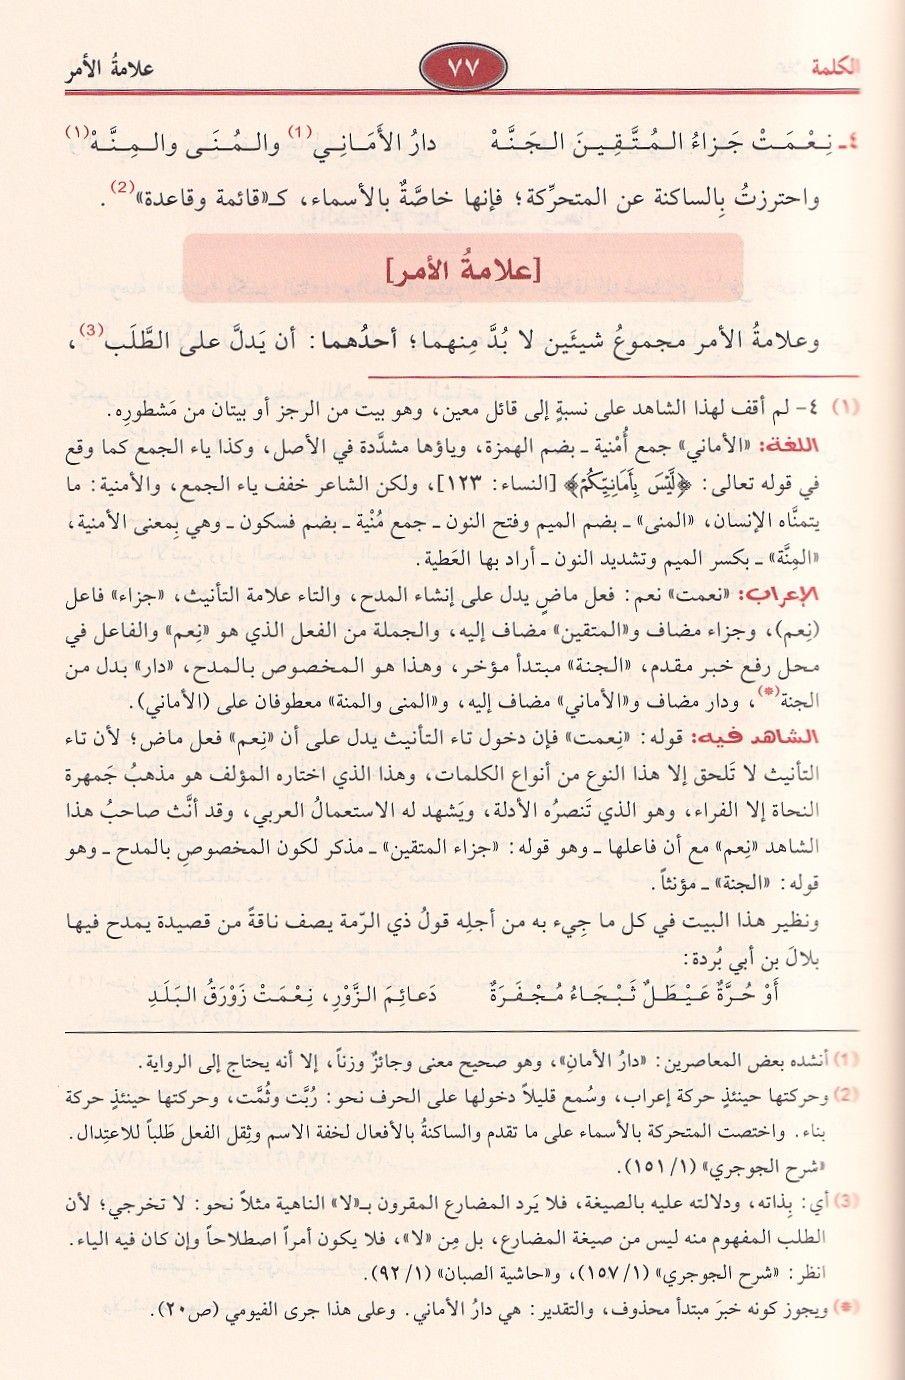 الكلمة ٧٧ علامةُ الأمر
٤ـ نِعْمَتْ جَزاءُ المُتَّقِينَ الجَنَّهْ دارُ الأَمَانِي(1) والمُنَى والمِنَّهْ(١)
واحترزتُ بِالساكنة عن المتحرِّكة؛ فإنها خاصَّةٌ بالأسماء، كـ«قائمة وقاعدة»(2).
[علامةُ الأمر]
وعلامةُ الأمر مجموعُ شيئَين لا بُدَّ مِنهما؛ أحدُهما: أن يَدلَّ على الطَّلَب(3)،
(١) ٤- لم أقف لهذا الشاهد على نسبةٍ إلى قائل معين، وهو بيت من الرجز أو بيتان من مَشطورِه.
اللغة: «الأماني» جمع أُمْنية ـ بضم الهمزة، وياؤها مشدَّدة في الأصل، وكذا ياء الجمع كما وقع
في قوله تعالى: ﴿لَّيْسَ بِأَمَانِيِّكُمْ﴾ [النساء: ١٢٣]، ولكن الشاعر خفف ياء الجمع، والأمنية: ما
يتمنَّاه الإنسان، «المنى» ـ بضم الميم وفتح النون ـ جمع مُنْية ـ بضم فسكون ـ وهي بِمعنى الأمنية،
«المِنَّة» ـ بكسر الميم وتشديد النون ـ أراد بها العَطية.
الإعراب: «نعمت» نعم: فعل ماضٍ يدل على إنشاء المدح، والتاء علامة التأنيث، «جزاء» فاعل
(نِعم)، وجزاء مضاف و«المتقين» مضاف إليه، والجملة من الفعل الذي هو «نِعم» والفاعل في
محل رفع خبر مقدم، «الجنة» مبتدأ مؤخر، وهذا هو المخصوص بالمدح، «دار» بدل من
الجنة(*)، ودار مضاف و«الأماني» مضاف إليه، و«المنى والمنة» معطوفان على (الأماني).
الشاهد فيه: قوله: «نِعمت» فإن دخول تاء التأنيث يدل على أن «نِعم» فعل ماض؛ لأن تاء
التأنيث لا تَلحق إلا هذا النوع من أنواع الكلمات، وهذا الذي اختاره المؤلف هو مذهبُ جَمهرة
النحاة إلا الفراء، وهو الذي تَنصرُه الأدلة، ويَشهد له الاستعمالُ العربي، وقد أنَّث صاحبُ هذا
الشاهد «نِعم» مع أن فاعلها ـ وهو قوله: «جزاء المتقين» ـ مذكر لكون المخصوصِ بالمدح ـ وهو
قوله: «الجنة» ـ مؤنثاً.
ونظير هذا البيت في كل ما جِيء به من أجلِه قولُ ذي الرّمة يصف ناقةً من قصيدة يمدح فيها
بلالَ بن أبي بُردة:
أَوْ حُرَّةٌ عَيْطَلٌ ثَبْجَاءُ مُجْفَرَةٌ دَعائِمَ الزَّوْرِ، نِعْمَتْ زَوْرَقُ البَلَدِ
(1) أنشده بعض المعاصرين: «دارُ الأمانِ»، وهو صحيح معنى وجائزٌ وزناً، إلا أنه يحتاج إلى الرواية.
(2) وحركتها حينئذٍ حركة إعراب، وسُمع قليلاً دخولها على الحرف نحو: رُبَّت وثُمَّت، وحركتها حينئذٍ حركة
بناء. واختصت المتحركة بالأسماء على ما تقدم والساكنةُ بالأفعال لخفة الاسم وثِقل الفعل طَلباً للاعتِدال.
«شرح الجوجري» (١/ ١٥١).
(3) أي: بِذاته، ودلالته عليه بالصيغة، فلا يَرد المضارع المقرون بـ«لا» الناهية مثلاً نحو: لا تخرجي؛ لأن
الطلب المفهوم منه ليس من صيغة المضارع، بل مِن «لا»، فلا يكون أمراً اصطلاحاً وإن كان فيه الياء.
انظر: «شرح الجوجري» (١/ ١٥٧)، و«حاشية الصبان» (١/ ٩٢).
(*) ويجوز كونه خبرَ مبتدأ محذوف، والتقدير: هي دارُ الأماني. وعلى هذا جرى الفيومي (ص٢٠).